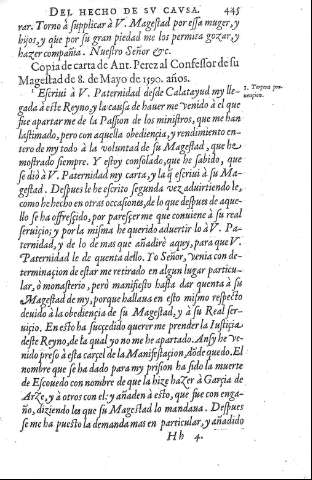 DEL HECHO DE SV CAVSA. 445
rar. Torno à supplicar à V. Magestad por essa muger, y
hijos, y que por su gran piedad me los permita gozar, y
hazer compañia. Nuestro Señor &c.
Copia de carta de Ant. Perez al Confessor de su
Magestad de 8. de Mayo de 1590. años.
1 Escriui à V. Paternidad desde Calatayud my lle-
gada à este Reyno, y la causa de hauer me venido à el que
fue apartar me de la Passion de los ministros, que me han
lastimado, pero con aquella obediençia, y rendimiento en-
tero de my todo à la voluntad de su Magestad, que he
mostrado siempre. Y estoy consolado, que he sabido, que
se diò à V. Paternidad my carta, y la q̃ escriui à Su Ma-
gestad. Despues le he escrito segunda vez aduirtiendo le,
como he hecho en otras occasiones, de lo que despues de aque-
llo se ha offrescido, por paresçer me que conuiene à su real
seruiçio; y por la misma he querido aduertir lo à V. Pa-
ternidad, y de lo de mas que añadirè aquy, para que V.
Paternidad le de quenta dello. Yo Señor, venia con de-
terminaçion de estar me retirado en algun lugar particu-
lar, ò monasterio, però manifiesto hasta dar quenta à su
Magestad de my, porque hallaua en esto mismo respecto
deuido à la obediençia de su Magestad, y à su Real ser-
uiçio. En esto ha succedido querer me prender la Iustiçia
deste Reyno, de la qual yo no me he apartado. Ansy he ve-
nido preso à esta carçel de la Manifestaçion adõde quedo. El
nombre que se ha dado para my prision ha sido la muerte
de Escouedo con nombre de que la hize hazer à Garçia de
Arze, y à otros con el: y añaden à esto, que fue con enga-
ño, diziendo les que su Magestad lo mandaua. Despues
se me ha puesto la demanda mas en particular, y añadido
Hh 4.